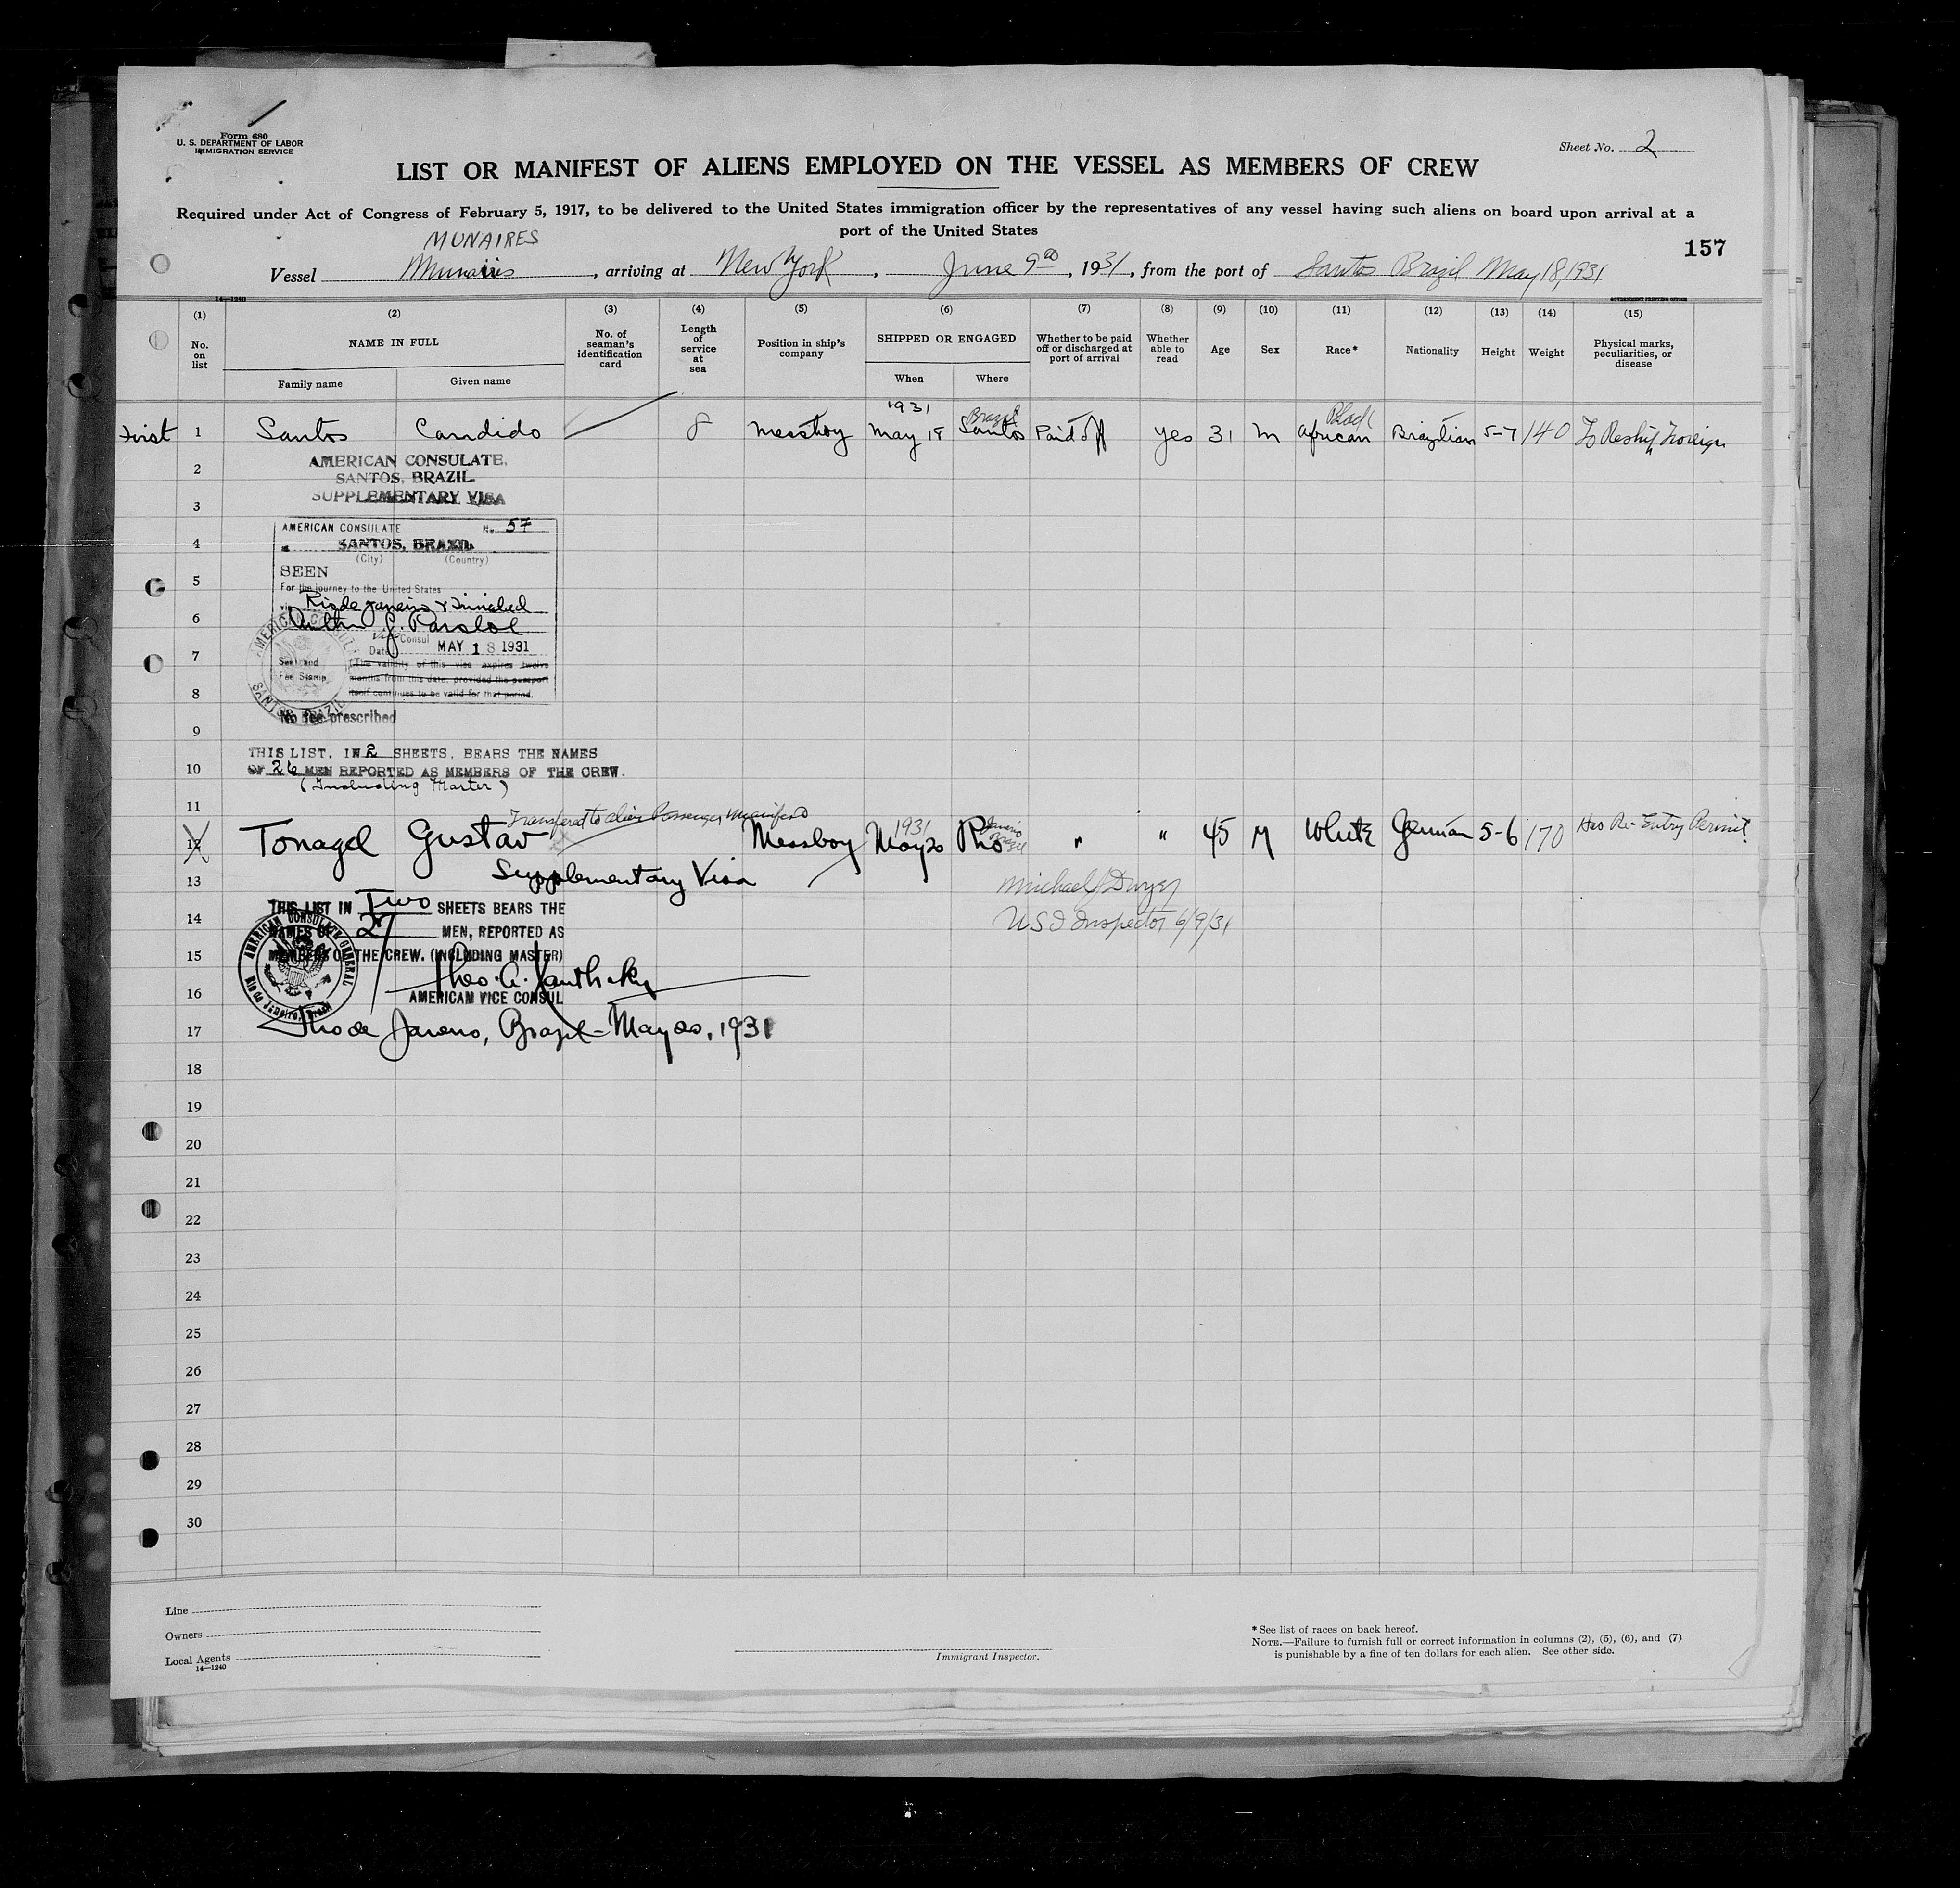 Form 680
U. S. DEPARTMENT OF LABOR
IMMIGRATION SERVICE
Sheet No. 2
LIST OR MANIFEST OF ALIENS EMPLOYED ON THE VESSEL AS MEMBERS OF CREW
Required under Act of Congress of February 5, 1917, to be delivered to the United States immigration officer by the representatives of any vessel having such aliens on board upon arrival at a
port of the United States
157
MUNAIRES
Vessel Munaires, arriving at New York, June 9th, 1931, from the port of Santos Brazil May 18, 1931
14—1240
GOVERNMENT PRINTING OFFICE
(1) (2) (3) (4) (5) (6) (7) (8) (9) (10) (11) (12) (13) (14) (15)
No. on list
NAME IN FULL
Family name
Given name
No. of seaman's identification card
Length of service at sea
Position in ship's company
SHIPPED OR ENGAGED
When
Where
Whether to be paid off or discharged at port of arrival
Whether able to read
Age
Sex
Race*
Nationality
Height
Weight
Physical marks, peculiarities, or disease
1931 Brazil Black
First 1 Santos Candido 8 Messboy May 18 Santos Paid off yes 31 M African Brazilian 5-7 140 To Reship Foreign
AMERICAN CONSULATE,
SANTOS, BRAZIL
SUPPLEMENTARY VISA
2
3
AMERICAN CONSULATE No. 57
4
SANTOS, BRAZIL
(City) (Country)
SEEN
5
For the journey to the United States
via Rio de Janeiro & Trinidad
6
Vice Consul
Date MAY 18 1931
7
Seal and Fee Stamp
The validity of this visa expires twelve
months from this date, provided the passport
itself continues to be valid for that period.
8
AMERICAN CONSULATE SANTOS, BRAZIL
No fee prescribed
9
THIS LIST, IN 2 SHEETS, BEARS THE NAMES
10
OF 26 MEN REPORTED AS MEMBERS OF THE CREW.
(Including Master)
11
Transfered to alien Passenger Manifest
1931 Janeiro Brazil
12 Tonagel Gustav Messboy May 20 Rio " " 45 M White German 5-6 170 Has Re-Entry Permit
13
Supplementary Visa
Michael J Dwyer
THIS LIST IN Two SHEETS BEARS THE
14
USI Inspector 6/9/31
NAMES OF 27 MEN, REPORTED AS
15
MEMBERS OF THE CREW. (INCLUDING MASTER)
AMERICAN CONSULATE GENERAL Rio de Janeiro, Brazil
16
AMERICAN VICE CONSUL
17
Rio de Janeiro, Brazil - May 20, 1931
18
19
20
21
22
23
24
25
26
27
28
29
30
Line
Owners
Local Agents
14—1240
Immigrant Inspector.
* See list of races on back hereof.
NOTE.—Failure to furnish full or correct information in columns (2), (5), (6), and (7)
is punishable by a fine of ten dollars for each alien. See other side.